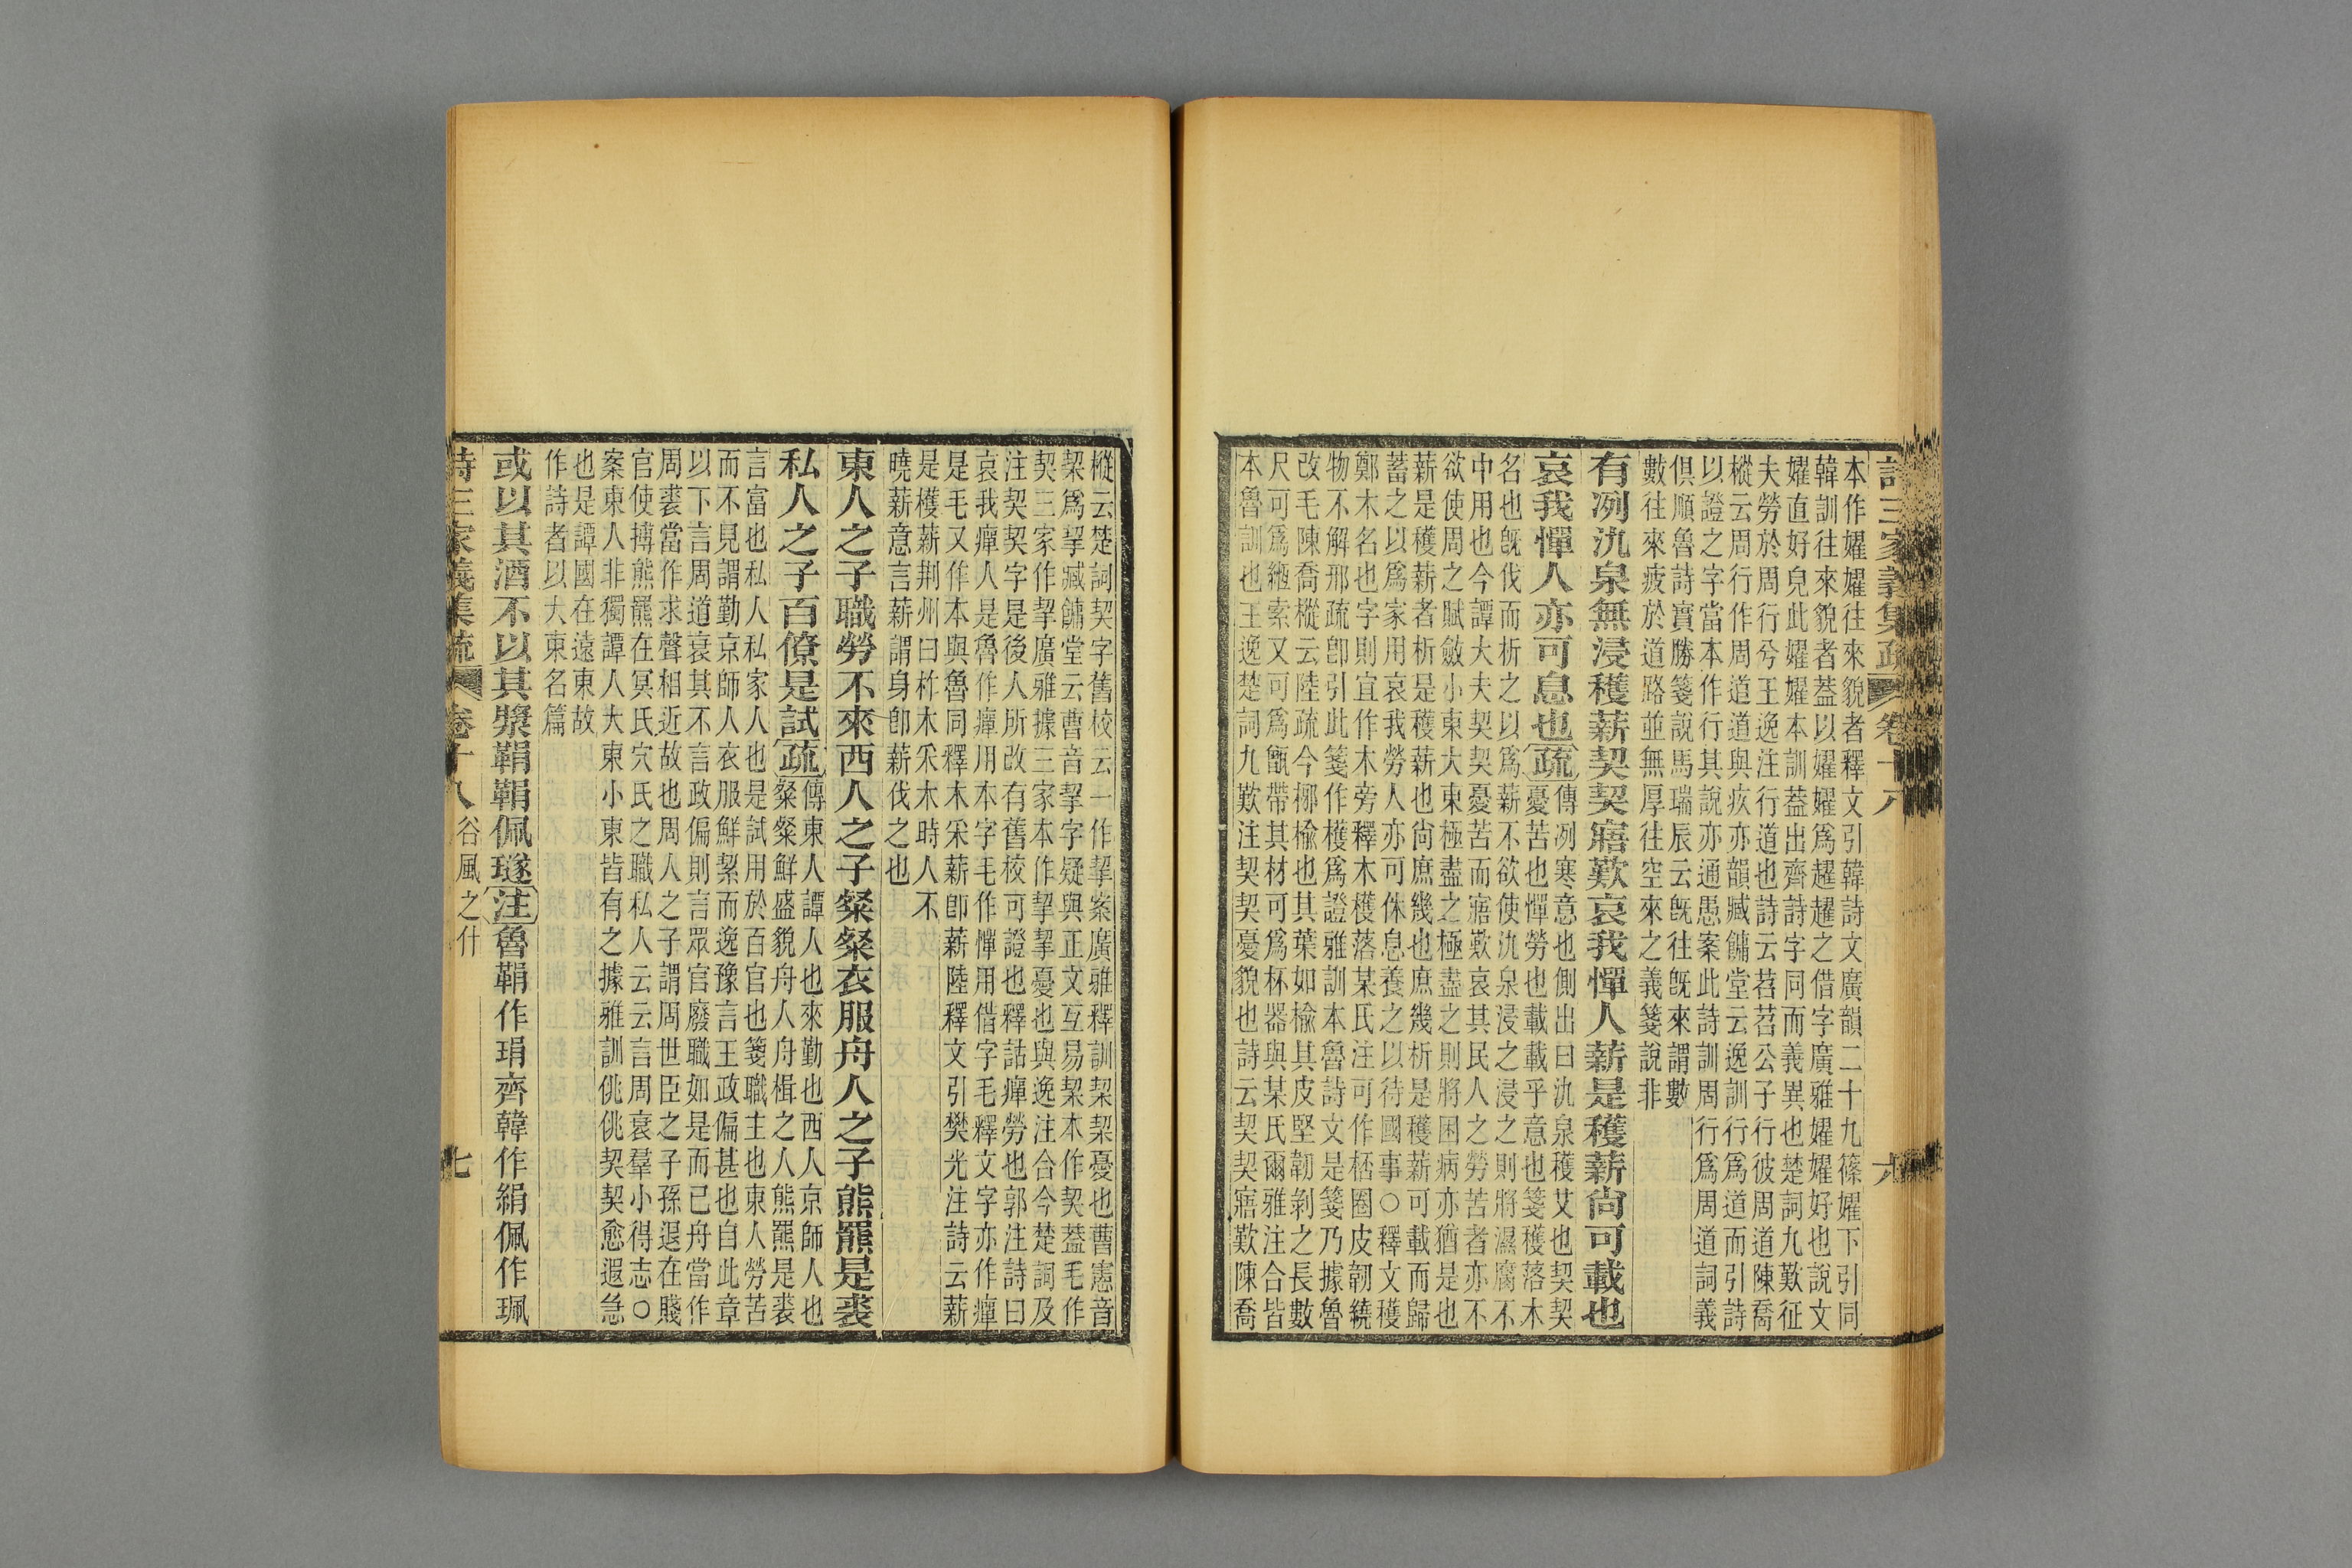 詩三家義集疏 卷十八 六
本作嬥嬥往來貌者釋文引韓詩文廣韻二十九篠嬥下引同
韓訓往來貌者蓋以嬥嬥爲趯趯之借字廣雅嬥嬥好也說文
嬥直好皃此嬥嬥本訓蓋出齊詩字同而義異也楚詞九歎征
夫勞於周行兮王逸注行道也詩云苕苕公子行彼周道陳喬
樅云周行作周道道與疚亦韻臧鏞堂云逸訓行爲道而引詩
以證之字當本作行其說亦通愚案此詩訓周行爲周道詞義
俱順魯詩實勝箋說馬瑞辰云旣往旣來謂數
數往來疲於道路並無厚往空來之義箋說非
有冽氿泉無浸穫薪契契寤歎哀我憚人薪是穫薪尙可載也
哀我憚人亦可息也疏傳冽寒意也側出曰氿泉穫艾也契契
憂苦也憚勞也載載乎意也箋穫落木
名也旣伐而析之以爲薪不欲使氿泉浸之浸之則將濕腐不
中用也今譚大夫契契憂苦而寤歎哀其民人之勞苦者亦不
欲使周之賦斂小東大東極盡之極盡之則將困病亦猶是也
薪是穫薪者析是穫薪也尙庶幾也庶幾析是穫薪可載而歸
蓄之以爲家用哀我勞人亦可休息養之以待國事○釋文穫
鄭木名也字則宜作木旁釋木檴落某氏注可作桮圈皮韌繞
物不解邢疏卽引此箋作檴爲證雅訓本魯詩文是箋乃據魯
改毛陳喬樅云陸疏今椰榆也其葉如榆其皮堅韌剝之長數
尺可爲絙索又可爲甑帶其材可爲杯器與某氏爾雅注合皆
本魯訓也王逸楚詞九歎注契契憂貌也詩云契契寤歎陳喬
樅云楚詞契字舊校云一作挈案廣雅釋訓栔栔憂也曹憲音
栔爲挈臧鏞堂云曹音挈字疑與正文互易栔本作契蓋毛作
契三家作挈廣雅據三家本作挈挈憂也與逸注合今楚詞及
注契契字是後人所改有舊校可證也釋詁癉勞也郭注詩曰
哀我癉人是魯作癉用本字毛作憚用借字毛釋文字亦作癉
是毛又作本與魯同釋木采薪卽薪陸釋文引樊光注詩云薪
是檴薪荆州曰柞木采木時人不
曉薪意言薪謂身卽薪伐之也
東人之子職勞不來西人之子粲粲衣服舟人之子熊羆是裘
私人之子百僚是試疏傳東人譚人也來勤也西人京師人也
粲粲鮮盛貌舟人舟楫之人熊羆是裘
言富也私人私家人也是試用於百官也箋職主也東人勞苦
而不見謂勤京師人衣服鮮絜而逸豫言王政偏甚也自此章
以下言周道衰其不言政偏則言眾官廢職如是而已舟當作
周裘當作求聲相近故也周人之子謂周世臣之子孫退在賤
官使搏熊羆在冥氏穴氏之職私人云云言周衰羣小得志○
案東人非獨譚人大東小東皆有之據雅訓佻佻契契愈遐急
也是譚國在遠東故
作詩者以大東名篇
或以其酒不以其漿鞙鞙佩璲注魯鞙作琄齊韓作絹佩作珮
詩三家義集疏 卷十八 谷風之什 七